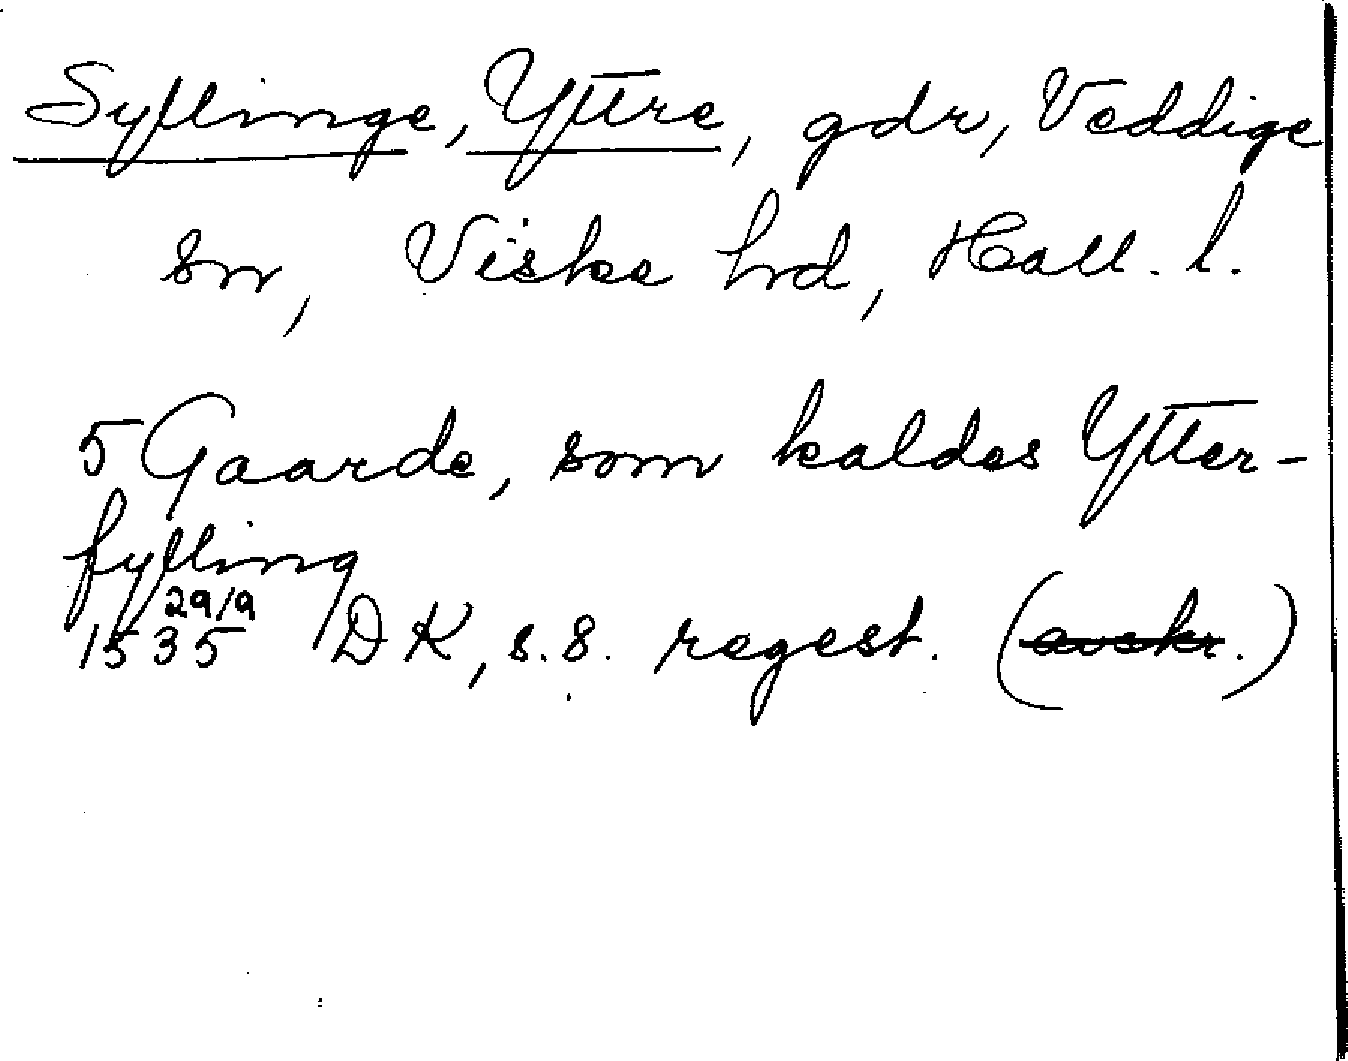 Syllinge, Yttre, gdr, Veddige
sn, Viske hrd, Hall. l.
5 Gaarde, som kaldes Ytter-
fylling
1535 29/9 DK, s. 8. regest. (avskr.)